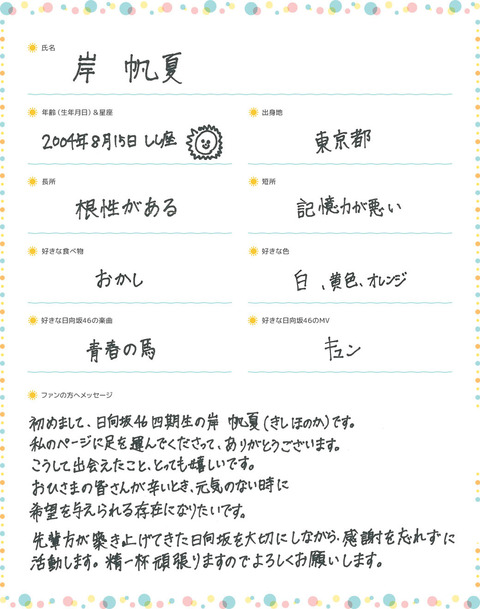 氏名
岸 帆夏
年齢(生年月日)&星座
2004年8月15日 しし座
出身地
東京都
長所
根性がある
短所
記憶力が悪い
好きな食べ物
おかし
好きな色
白、黄色、オレンジ
好きな日向坂46の楽曲
青春の馬
好きな日向坂46のMV
キュン
ファンの方へメッセージ
初めまして、日向坂46四期生の岸 帆夏(きしほのか)です。
私のページに足を運んでくださって、ありがとうございます。
こうして出会えたこと、とっても嬉しいです。
おひさまの皆さんが辛いとき、元気のない時に
希望を与えられる存在になりたいです。
先輩方が築き上げてきた日向坂を大切にしながら、感謝を忘れずに
活動します。精一杯頑張りますのでよろしくお願いします。